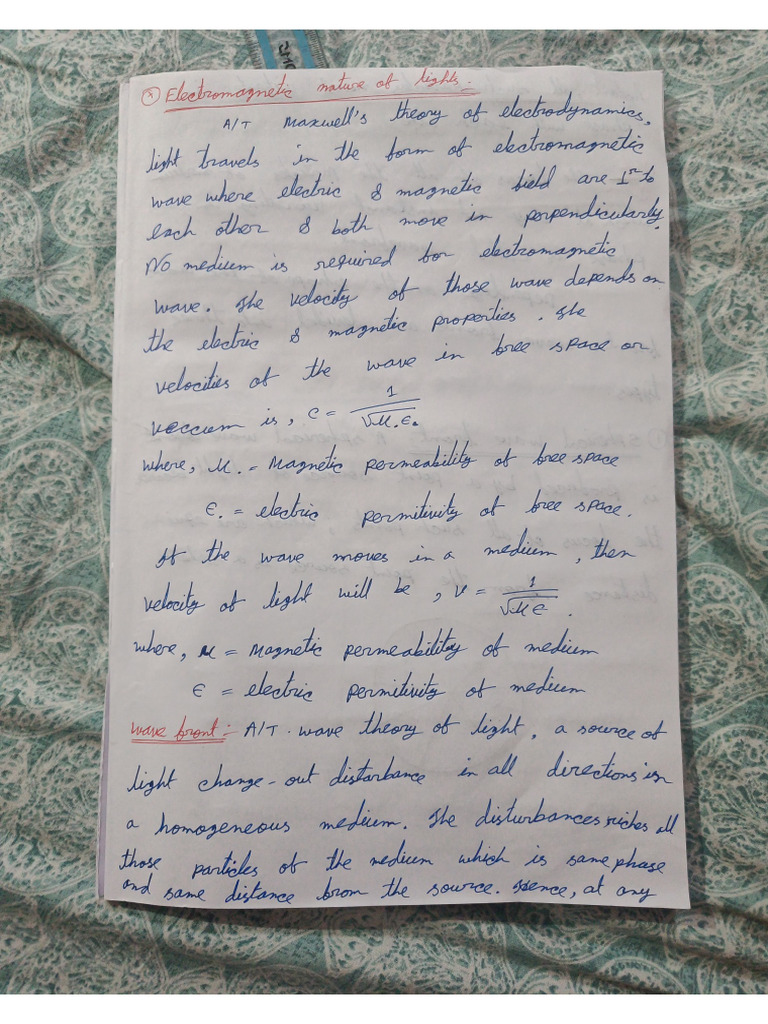 Electromagnetic nature of lights.
A/T Maxwell's theory of electrodynamics,
light travels in the form of electromagnetic
wave where electric & magnetic field are 1r to
each other & both move in perpendicularly.
No medium is required for electromagnetic
wave. The velocity of those wave depends on
the electric & magnetic properties. The
velocities of the wave in free space or
vaccum is, c = 1/√μ.ε.
where, μ. = Magnetic permeability of free space
ε. = electric permitivity of free space.
If the wave moves in a medium, then
velocity of light will be, v = 1/√με.
where, μ = Magnetic permeability of medium
ε = electric permitivity of medium
wave front :- A/T. wave theory of light, a source of
light change-out disturbance in all directions in
a homogeneous medium. The disturbances riches all
those particles of the medium which is same phase
and same distance from the source. Hence, at any